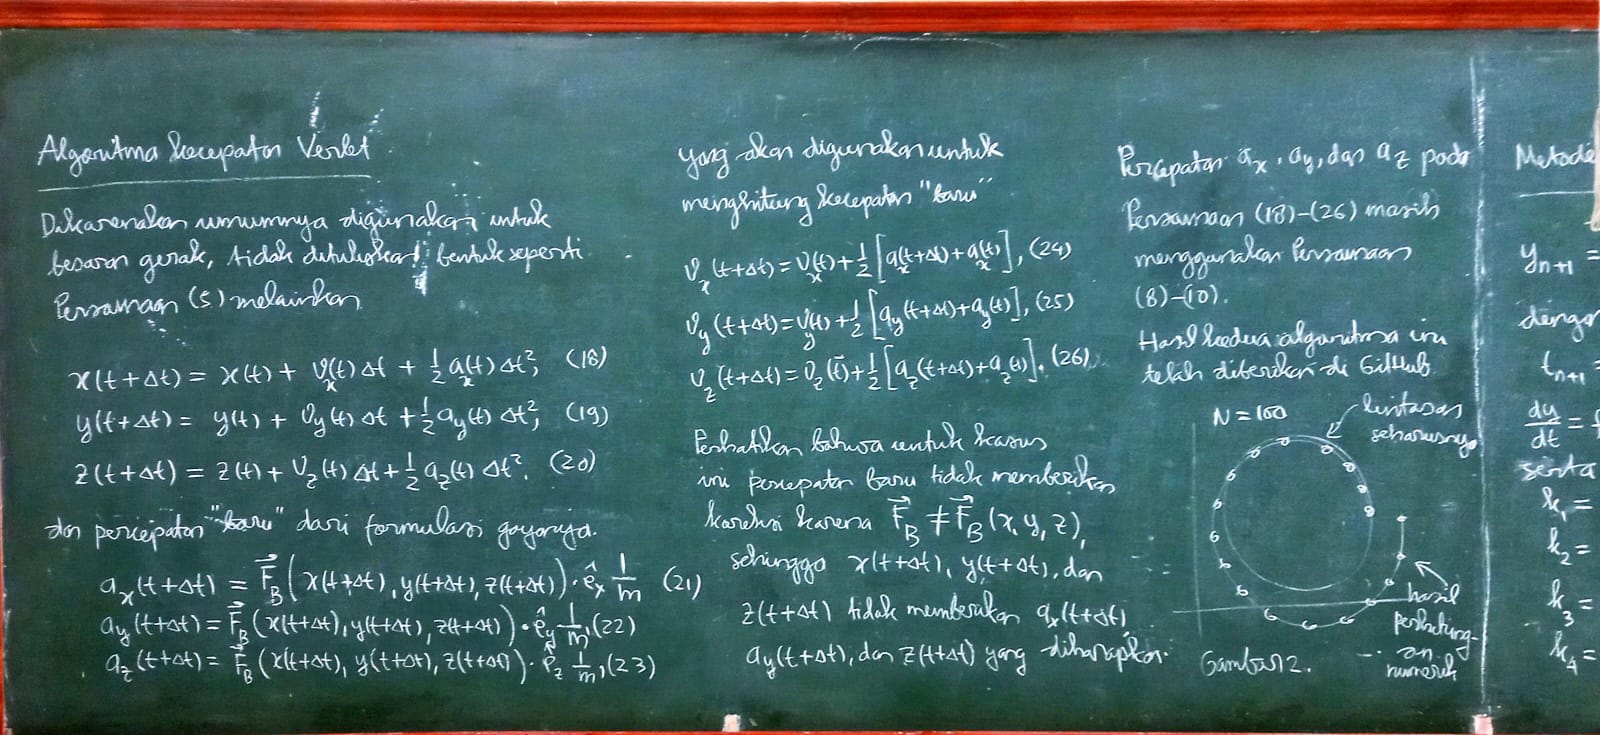 Algoritma kecepatan Verlet
Dikarenakan umumnya digunakan untuk
besaran gerak, tidak dituliskan bentuk seperti
Persamaan (5) melainkan
x(t+Δt) = x(t) + v_x(t) Δt + ½ a_x(t) Δt², (18)
y(t+Δt) = y(t) + v_y(t) Δt + ½ a_y(t) Δt², (19)
z(t+Δt) = z(t) + v_z(t) Δt + ½ a_z(t) Δt². (20)
dan percepatan "baru" dari formulasi gayanya.
a_x(t+Δt) = F⃗_B(x(t+Δt), y(t+Δt), z(t+Δt))·ê_x 1/m (21)
a_y(t+Δt) = F⃗_B(x(t+Δt), y(t+Δt), z(t+Δt))·ê_y 1/m, (22)
a_z(t+Δt) = F⃗_B(x(t+Δt), y(t+Δt), z(t+Δt))·ê_z 1/m, (23)
yang akan digunakan untuk
menghitung kecepatan "baru"
v_x(t+Δt) = v_x(t) + ½ [a_x(t+Δt) + a_x(t)], (24)
v_y(t+Δt) = v_y(t) + ½ [a_y(t+Δt) + a_y(t)], (25)
v_z(t+Δt) = v_z(t) + ½ [a_z(t+Δt) + a_z(t)]. (26)
Perhatikan bahwa untuk kasus
ini percepatan baru tidak memberikan
koreksi karena F⃗_B ≠ F⃗_B(x, y, z),
sehingga x(t+Δt), y(t+Δt), dan
z(t+Δt) tidak memberikan a_x(t+Δt)
a_y(t+Δt), dan z(t+Δt) yang diharapkan.
Percepatan a_x, a_y, dan a_z pada
Persamaan (18)-(26) masih
menggunakan Persamaan
(8)-(10).
Hasil kedua algoritma ini
telah diberikan di GitHub
N = 100
lintasan
seharusnya
hasil
perhitung-
an
numerik
Gambar 2.
Metode
y_{n+1} =
dengan
t_{n+1} =
dy/dt = f
serta
k_1 =
k_2 =
k_3 =
k_4 =